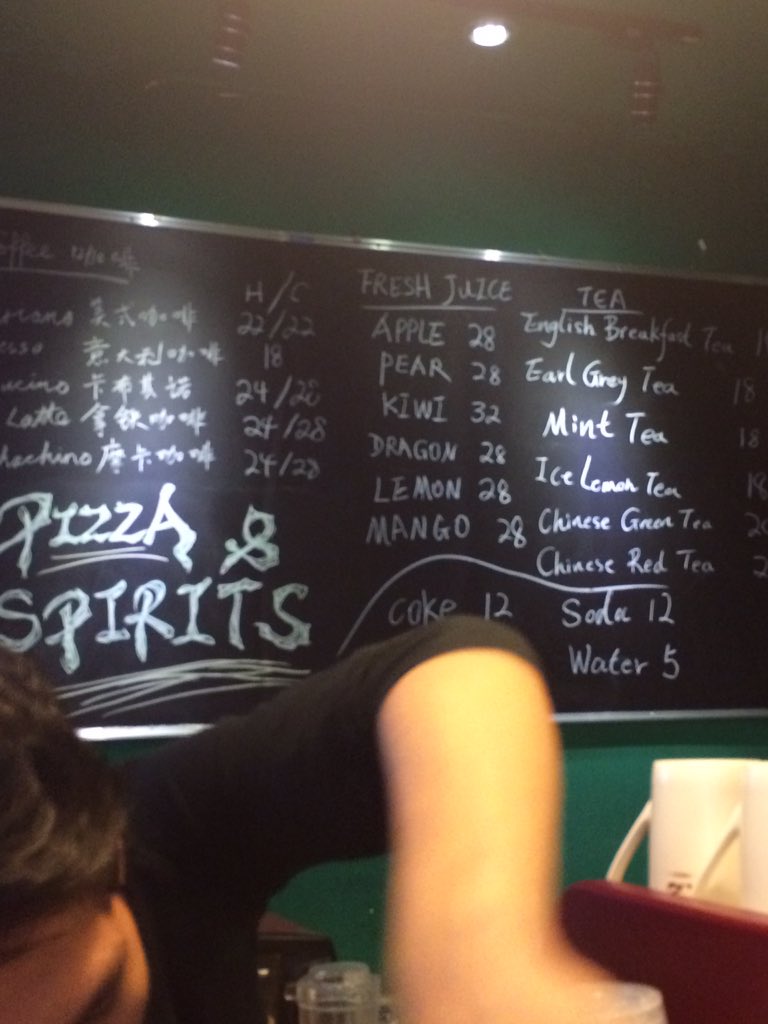 H/C
美式咖啡 22/22
意大利咖啡 18
卡布其诺 24/28
Latte 拿铁咖啡 24/28
摩卡咖啡 24/28
PIZZA &
SPIRITS
FRESH JUICE
APPLE 28
PEAR 28
KIWI 32
DRAGON 28
LEMON 28
MANGO 28
coke 12
TEA
English Breakfast Tea
Earl Grey Tea 18
Mint Tea 18
Ice Lemon Tea 18
Chinese Green Tea
Chinese Red Tea
Soda 12
Water 5